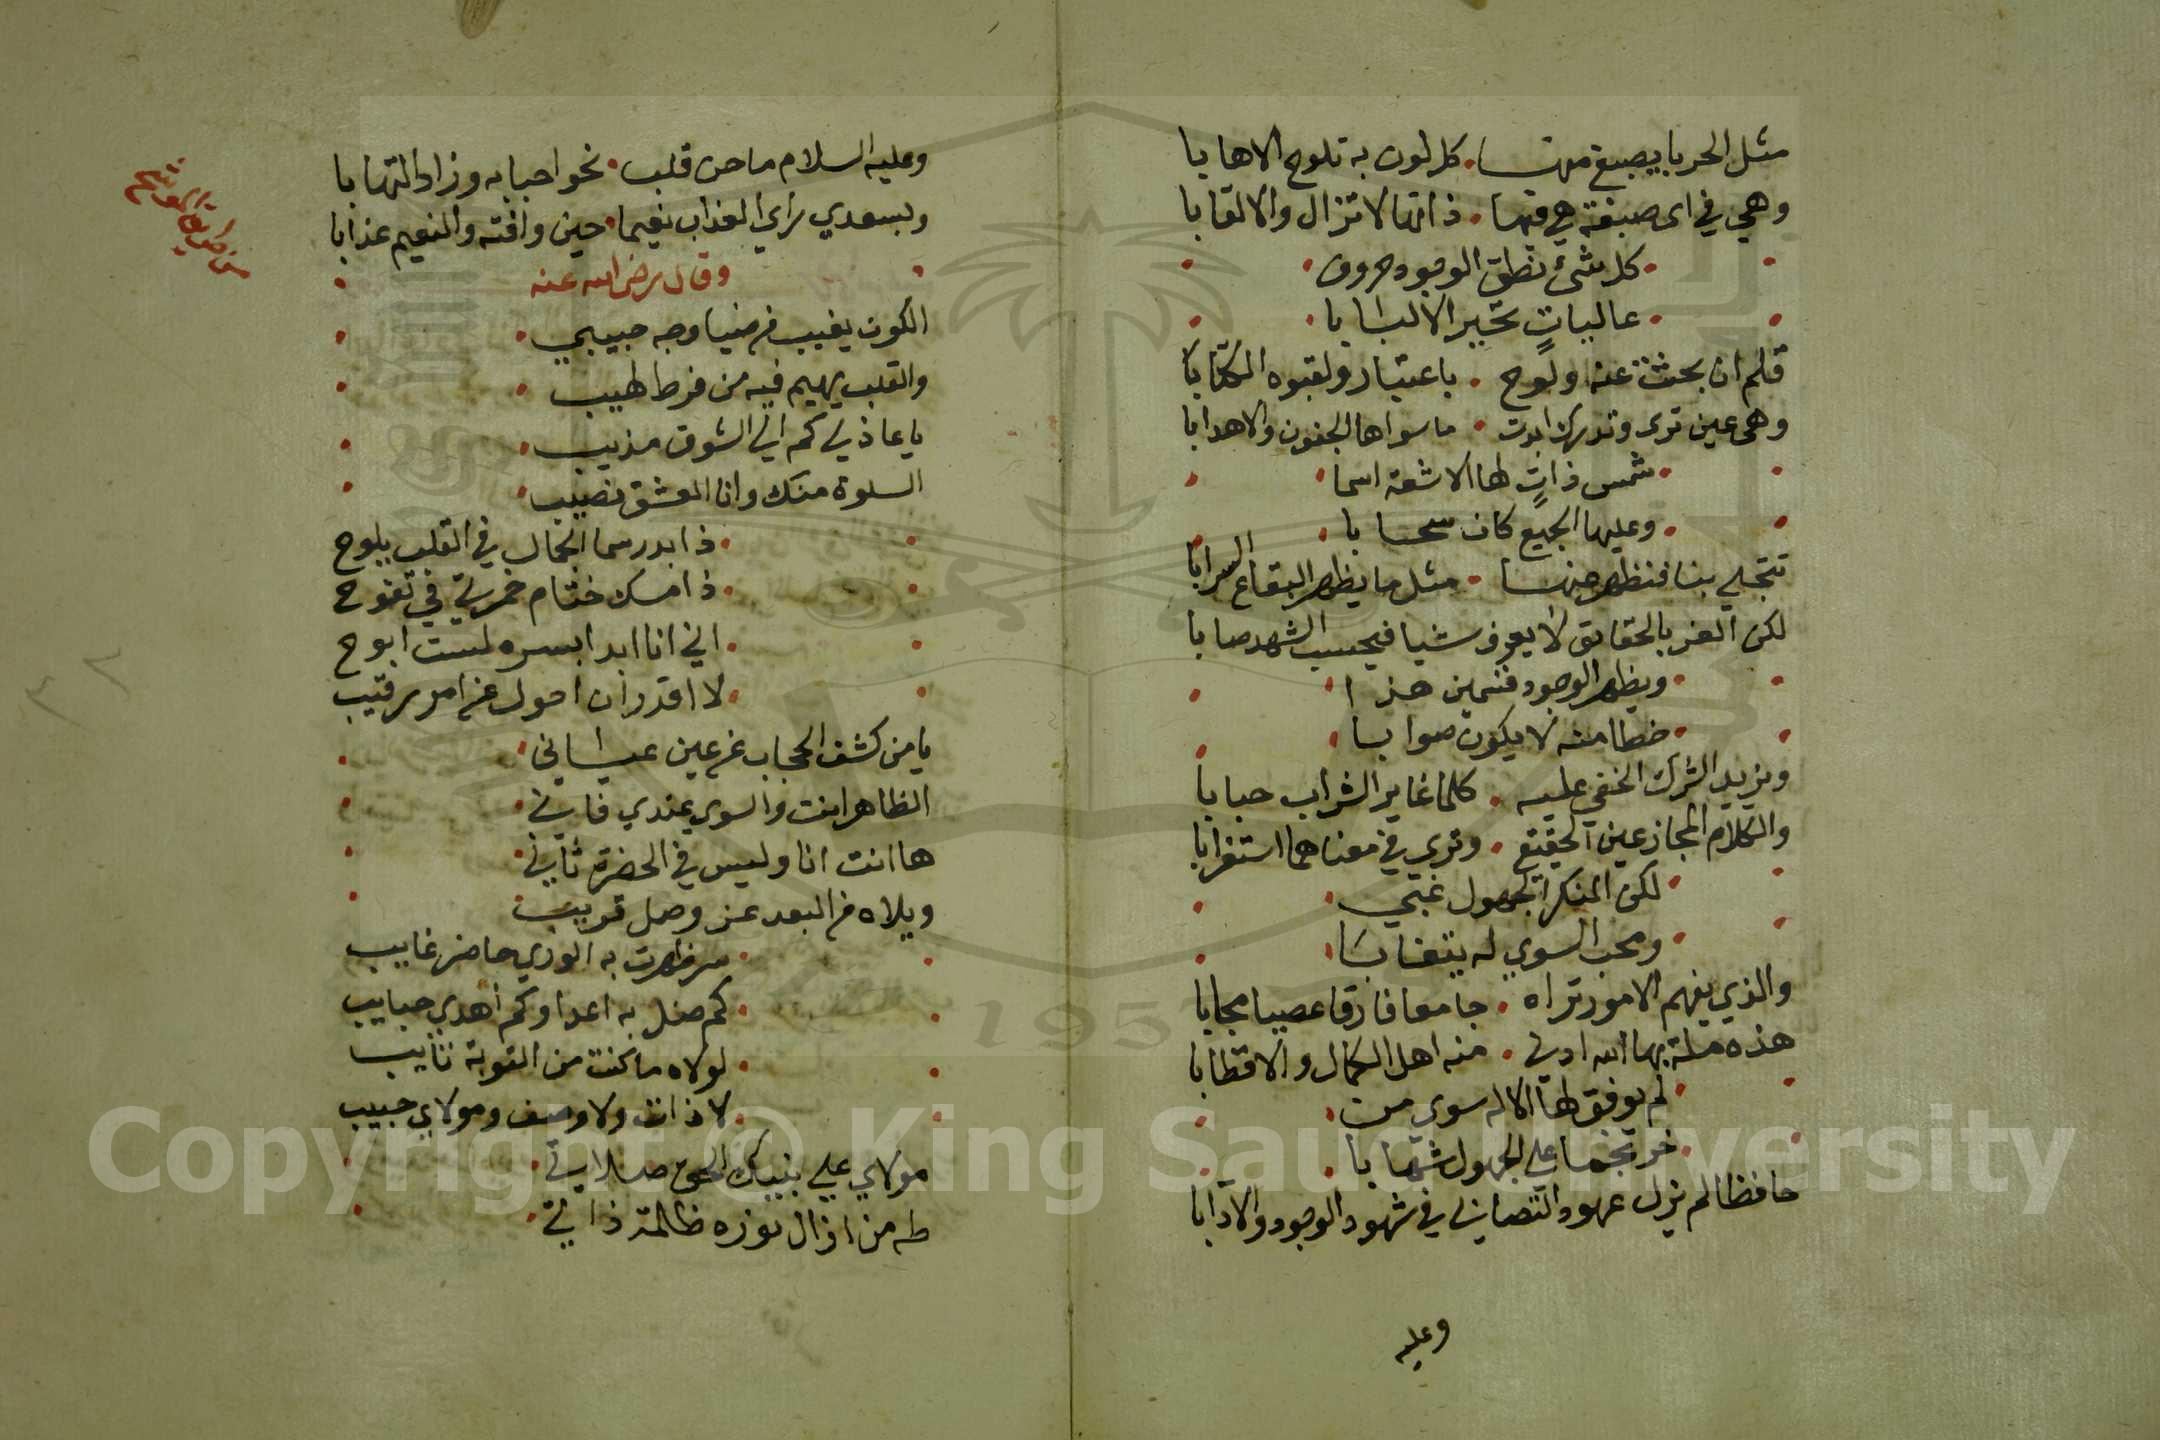 مثل الحربا يصبغ منها كل لون به تلوح الاهابا
وهي في اى صبغة هي فيها ذاتها لا تزال والالقابا
كل شئ نطق الوجود حروف
عاليات تحير الالبابا
قلم ان بحثت عنه ولوح باعتبار ولقبوه الكتابا
وهى عين ترى وتدرك ابدت ما سواها الجفون والاهدابا
شمس ذات لها الاشعة اسما
وعليها الجميع كان سحابا
تتجلي بنا فنظهر منها مثل ما يظهر البقاع السرابا
لكن الغر بالحقايق لا يعرف شيا فيحسب الشهد صابا
ويظهر الوجود قسمين هذا
خطا منه لا يكون صوابا
ويزيد الشرك الخفي عليه كلما غاير الشراب حبابا
والكلام المجاز عين الحقيقي وتري في معناهما استغرابا
لكن المنكر الجهول غبي
ومحب السوي له يتغابا
والذي يفهم الامور تراه جامعا فارقا عصيا مجابا
هذه ملة بها الله ادرى منه اهل الكمال والاقطابا
لم يوفق لها الاله سوى من
خر نجما على الجهول شهابا
حافظا لم يزل عهود التصابي في شهود الوجود والادابا
وعليه
وعليه السلام ما حن قلب نحو احبابه وزاد التهابا
وبسعدي راي العذاب نعيما حين وافته والنعيم عذابا
وقال رضي الله عنه
الكون يغيب في ضيا وجه حبيبي
والقلب يهيم فيه من فرط لهيب
يا عاذلي كم الي الشوق مذيب
السلوة منك وانا العشق نصيب
ذا بدر سما الجمال في القلب يلوح
ذا مسك ختام خمرتي في تفوح
اني انا ابدا بسره لست ابوح
لا اقدر ان احول عن امر رقيب
يا من كشف الحجاب عن عين عياني
الظاهر انت والسوي عندي فاني
ها انت انا وليس في الحضرة ثاني
ويلاه من البعد عن وصل قريب
سر ظهرت به الوري حاضر غايب
كم ضل به اعدا وكم اهدي حبايب
لولاه ما كنت من التوبة تايب
لا ذات ولا وصف ومولاي حبيب
مولاي علي نبيك الحي صلاتي
طه من ازال نوره ظلمة ذاتي